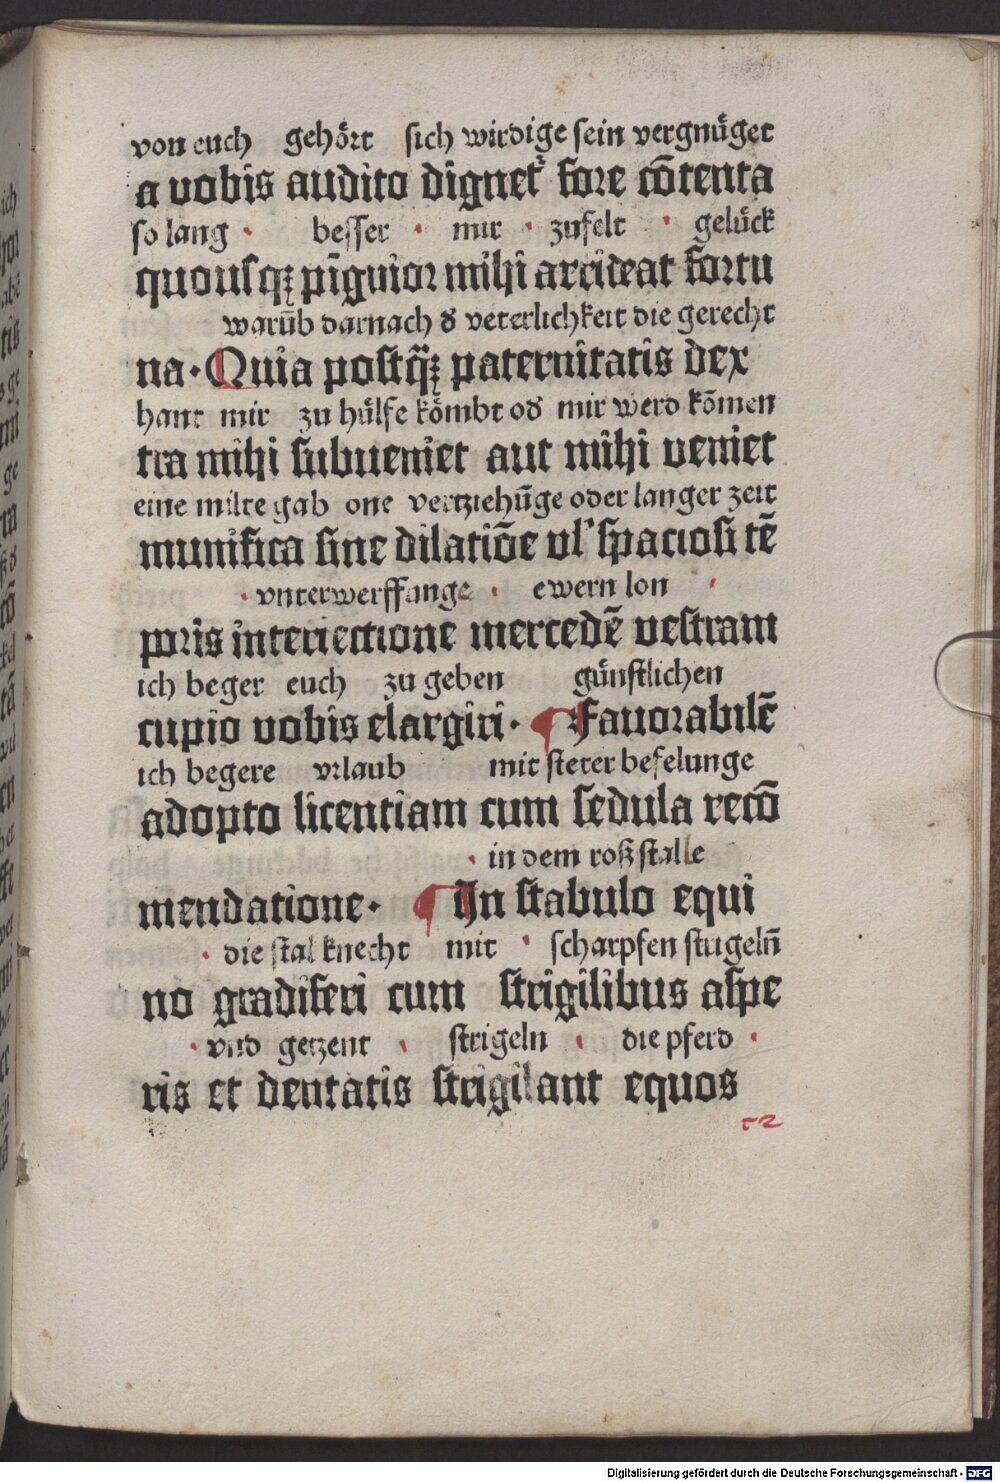 von euch gehört sich wirdige sein vergnüget
a vobis audito dignet᷑ fore cōtenta
so lang · besser · mir · zufelt · gelück
quousqꝫ pīguior mihi accideat fortu
warūb darnach d̕ veterlichkeit die gerecht
na · Quia postq̄ꝫ paternitatis dex
hant mir zu hülfe kömbt od̕ mir werd kōmen
tra mihi subueniet aut mihi veniet
eine milte gab one vertziehūge oder langer zeit
munifica sine dilatiōe vl̕ spaciosi tē
· vnterwerffange · ewern lon ·
poris interiectione mercedē vestram
ich beger euch zu geben günstlichen
cupio vobis elargiri · ¶ Fauorabilē
ich begere vrlaub mit steter befelunge
adopto licentiam cum sedula recō
· in dem roß stalle
mendatione · ¶ In stabulo equi
· die stal knecht mit · scharpfen strigelñ
no gradiferi cum strigilibus aspe
· vnd getzent · strigeln · die pferd ·
ris et dentatis strigilant equos
Digitalisierung gefördert durch die Deutsche Forschungsgemeinschaft · DFG